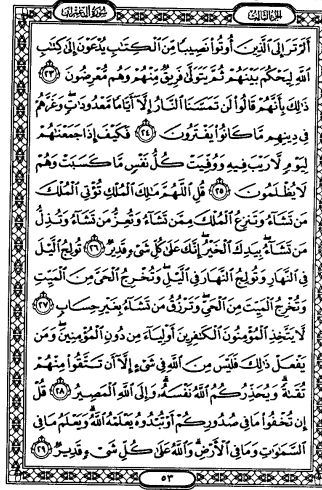 سُورَةُ آلِ عِمْرَانَ
الجزء الثالث
أَلَمْ تَرَ إِلَى الَّذِينَ أُوتُوا نَصِيبًا مِّنَ الْكِتَابِ يُدْعَوْنَ إِلَىٰ كِتَابِ
اللَّهِ لِيَحْكُمَ بَيْنَهُمْ ثُمَّ يَتَوَلَّىٰ فَرِيقٌ مِّنْهُمْ وَهُم مُّعْرِضُونَ ٢٣
ذَٰلِكَ بِأَنَّهُمْ قَالُوا لَن تَمَسَّنَا النَّارُ إِلَّا أَيَّامًا مَّعْدُودَاتٍ وَغَرَّهُمْ
فِي دِينِهِم مَّا كَانُوا يَفْتَرُونَ ٢٤ فَكَيْفَ إِذَا جَمَعْنَاهُمْ
لِيَوْمٍ لَّا رَيْبَ فِيهِ وَوُفِّيَتْ كُلُّ نَفْسٍ مَّا كَسَبَتْ وَهُمْ
لَا يُظْلَمُونَ ٢٥ قُلِ اللَّهُمَّ مَالِكَ الْمُلْكِ تُؤْتِي الْمُلْكَ
مَن تَشَاءُ وَتَنزِعُ الْمُلْكَ مِمَّن تَشَاءُ وَتُعِزُّ مَن تَشَاءُ وَتُذِلُّ
مَن تَشَاءُ بِيَدِكَ الْخَيْرُ إِنَّكَ عَلَىٰ كُلِّ شَيْءٍ قَدِيرٌ ٢٦ تُولِجُ اللَّيْلَ
فِي النَّهَارِ وَتُولِجُ النَّهَارَ فِي اللَّيْلِ وَتُخْرِجُ الْحَيَّ مِنَ الْمَيِّتِ
وَتُخْرِجُ الْمَيِّتَ مِنَ الْحَيِّ وَتَرْزُقُ مَن تَشَاءُ بِغَيْرِ حِسَابٍ ٢٧
لَّا يَتَّخِذِ الْمُؤْمِنُونَ الْكَافِرِينَ أَوْلِيَاءَ مِن دُونِ الْمُؤْمِنِينَ وَمَن
يَفْعَلْ ذَٰلِكَ فَلَيْسَ مِنَ اللَّهِ فِي شَيْءٍ إِلَّا أَن تَتَّقُوا مِنْهُمْ
تُقَاةً وَيُحَذِّرُكُمُ اللَّهُ نَفْسَهُ وَإِلَى اللَّهِ الْمَصِيرُ ٢٨ قُلْ
إِن تُخْفُوا مَا فِي صُدُورِكُمْ أَوْ تُبْدُوهُ يَعْلَمْهُ اللَّهُ وَيَعْلَمُ مَا فِي
السَّمَاوَاتِ وَمَا فِي الْأَرْضِ وَاللَّهُ عَلَىٰ كُلِّ شَيْءٍ قَدِيرٌ ٢٩
٥٣